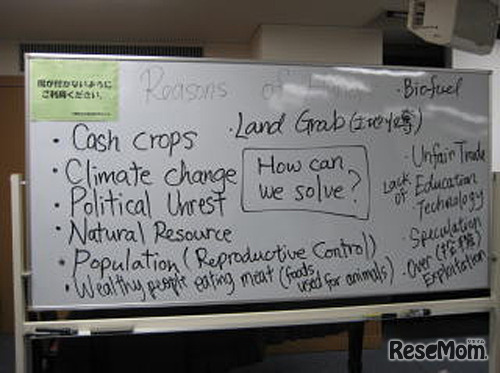 傷が付かないように
ご利用ください。
Reasons of
• Biofuel
• Land Grab
• Cash crops
• Climate change
• Political Unrest
• Natural Resource
• Population (Reproductive Control)
• Wealthy people eating meat (foods used for animals)
How can
we solve?
• Unfair Trade
Lack of Education
Technology
• Speculation
• Over
Exploitation
ReseMom.